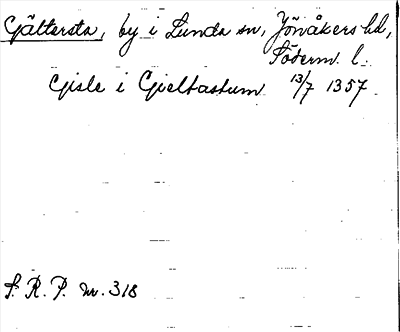 Gältersta, by i Lunda sn, Jönåkers hd,
Söderm. l.
Gisle i Gieltastum 13/7 1357.
S. R. P. nr. 318